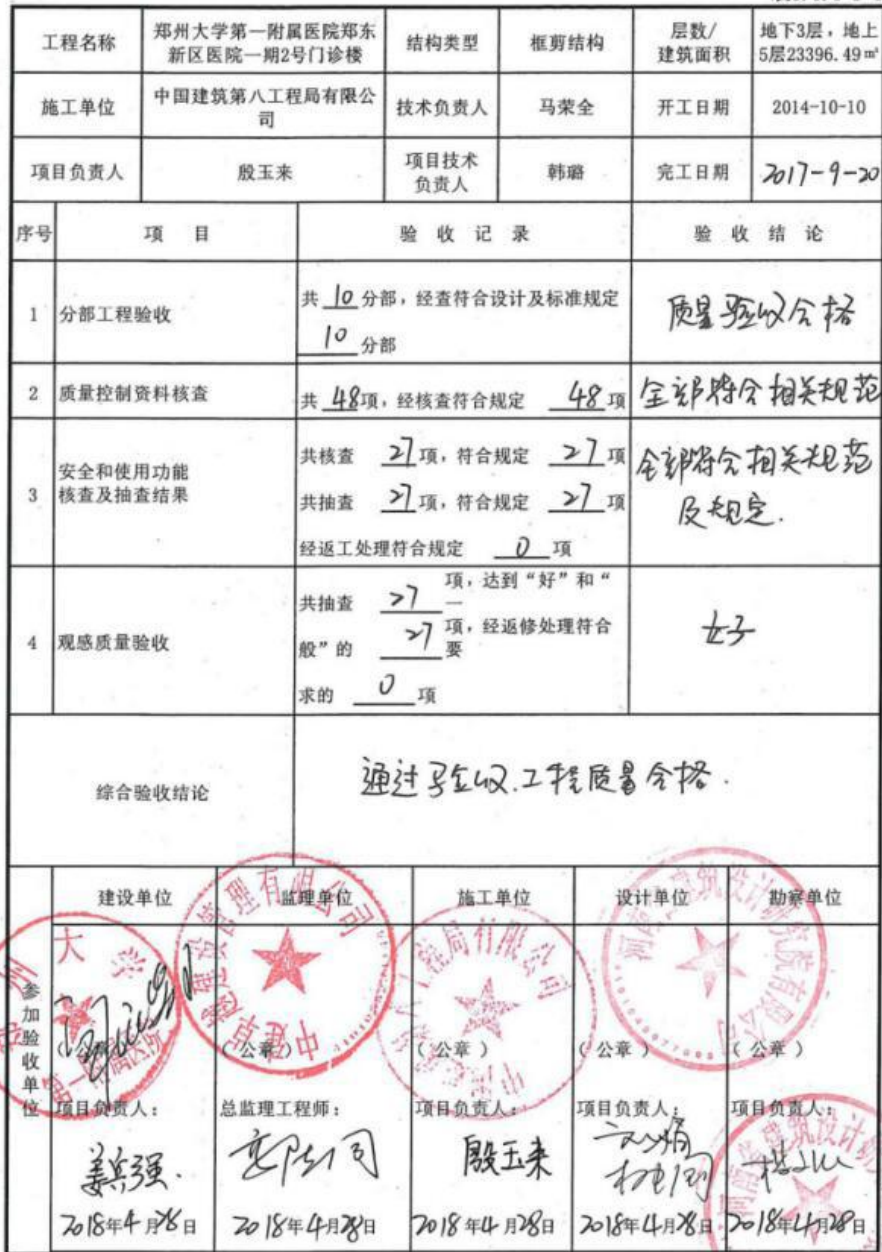 工程名称
郑州大学第一附属医院郑东
新区医院一期2号门诊楼
结构类型
框剪结构
层数/
建筑面积
地下3层，地上
5层23396.49㎡
施工单位
中国建筑第八工程局有限公
司
技术负责人
马荣全
开工日期
2014-10-10
项目负责人
殷玉来
项目技术
负责人
韩璐
完工日期
2017-9-20
序号
项 目
验 收 记 录
验 收 结 论
1
分部工程验收
共 10 分部，经查符合设计及标准规定
10 分部
质量验收合格
2
质量控制资料核查
共 48项，经核查符合规定 48 项
全部符合相关规范
3
安全和使用功能
核查及抽查结果
共核查 27项，符合规定 27项
共抽查 27项，符合规定 27项
经返工处理符合规定 0 项
全部符合相关规范
及规定.
4
观感质量验收
共抽查 27 项，达到“好”和“一
般”的 27 项，经返修处理符合要
求的 0 项
好
综合验收结论
通过验收.工程质量合格.
参加验收单位
建设单位
监理单位
施工单位
设计单位
勘察单位
（公章）
（公章）
（公章）
（公章）
（公章）
项目负责人：
总监理工程师：
项目负责人：
项目负责人：
项目负责人：
姜兵强.
殷玉来
2018年4月28日
2018年4月28日
2018年4月28日
2018年4月28日
2018年4月28日